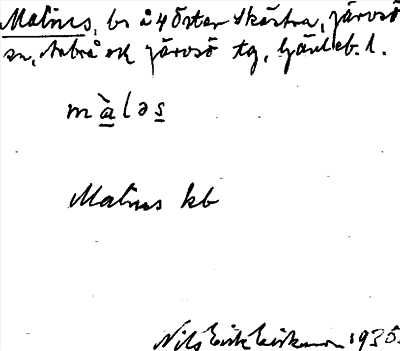 Matnus, br å 4 Öster Skästra, Järvsö
sn, Arbrå ock Järvsö tg, Gävleb. l.
màləs
Matnus kb
Nils Erik Eriksson 1935.